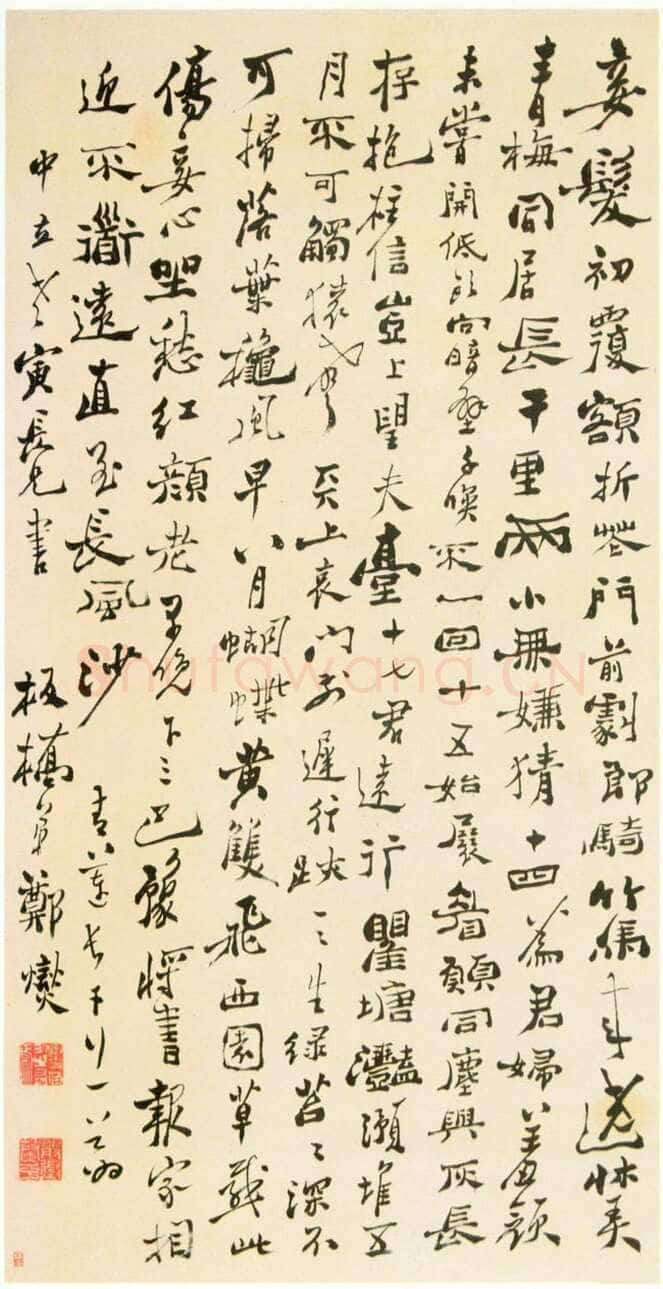 妾髮初覆額折花門前劇郎騎竹馬來遶牀弄
青梅同居長干里兩小無嫌猜十四為君婦羞顏
未嘗開低頭向暗壁千喚不一回十五始展眉願同塵與灰長
存抱柱信豈上望夫臺十七君遠行瞿塘灩澦堆五
月不可觸猿聲天上哀門前遲行跡一一生綠苔〻深不
可掃落葉秋風早八月蝴蝶黃雙飛西園草感此
傷妾心坐愁紅顏老早晚下三巴豫將書報家相
迎不道遠直至長風沙
青蓮長干行一首為
中立老寅長兄書
板橋弟鄭燮
Shufawang.CN